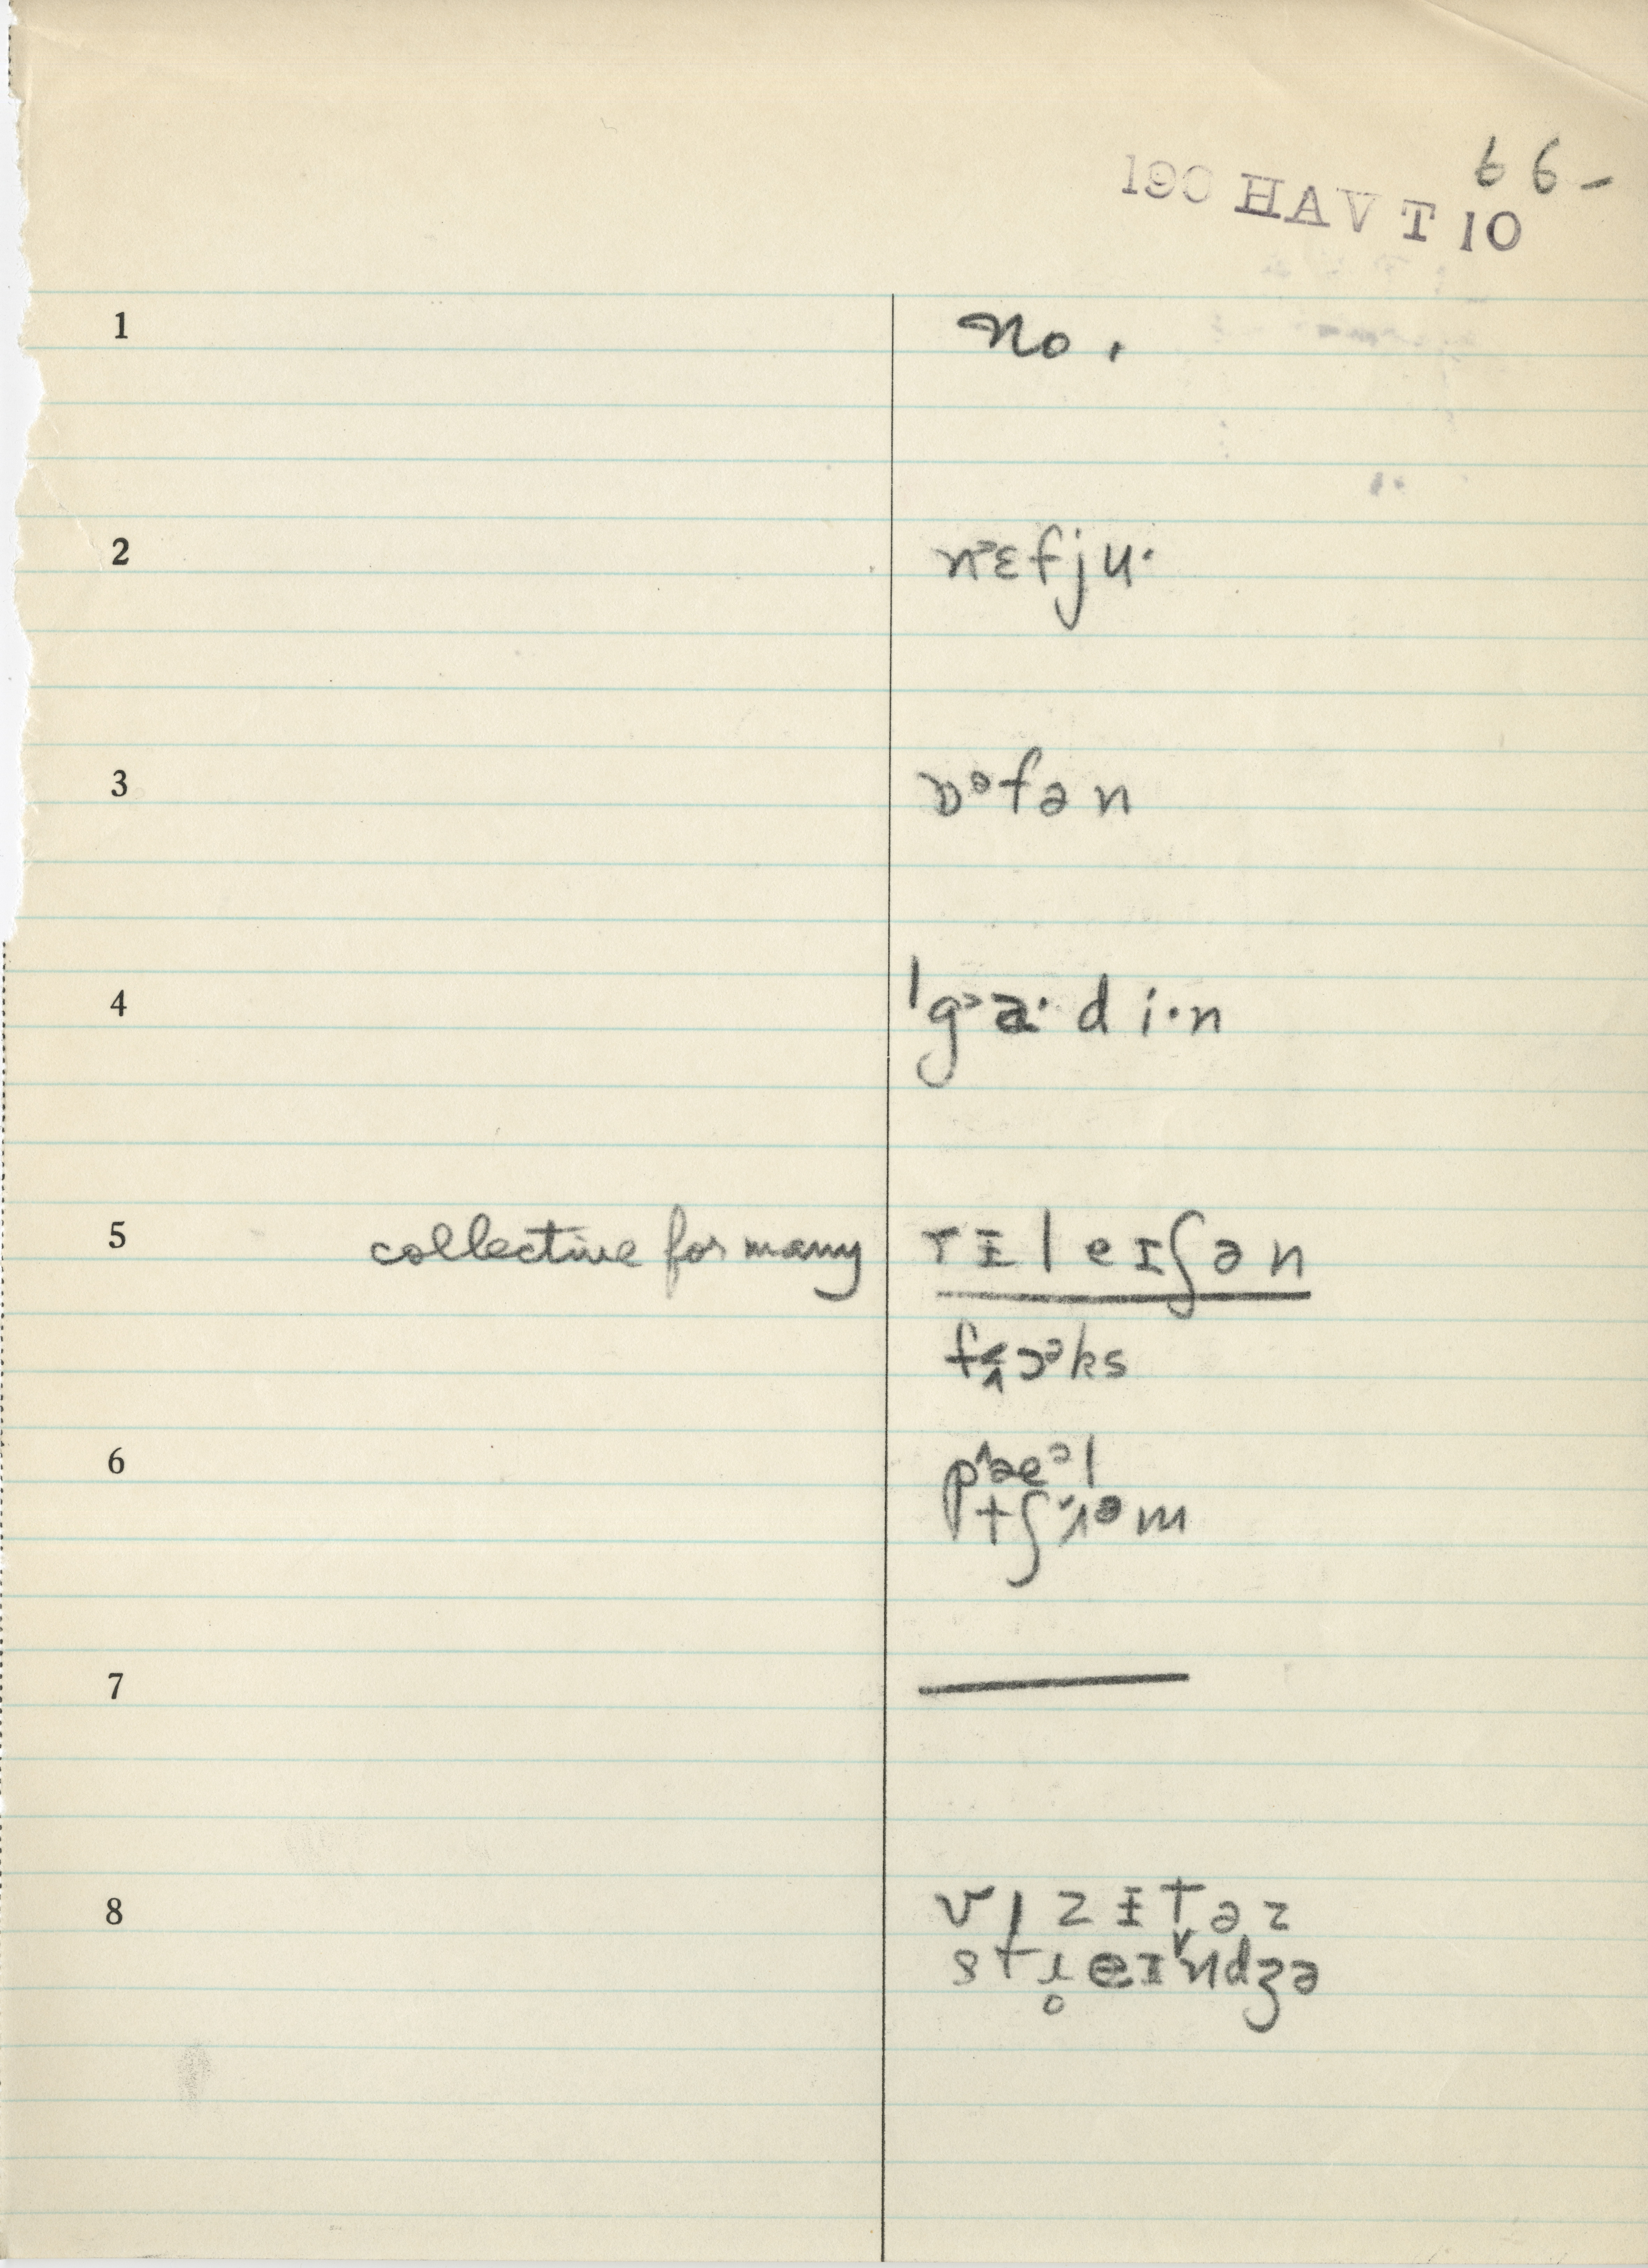 66-
190 HAVT 10
1 No.
2 nᵊɛfju·
3 ɒᵊfən
4 ˈg˃a·di·n
5 collective for many rɨleɪʃən
fʊks
6 pæᵊl
tʃəm
7 —
8 vɪzɨtəz
streɪndʒə